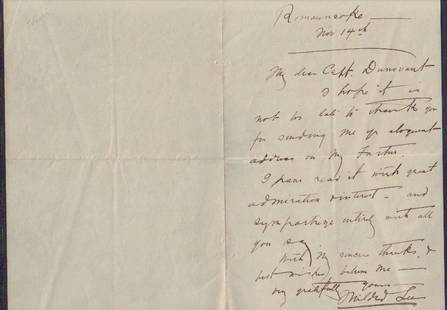 Romancoke —
Nov 14th
My dear Capt. Dunovant
I hope it is
not too late to thank you
for sending me yr eloquent
address on my Father.
I have read it with great
admiration & interest - and
sympathize entirely with all
you say
With my sincere thanks, &
best wishes, believe me —
very gratefully yours
Mildred Lee